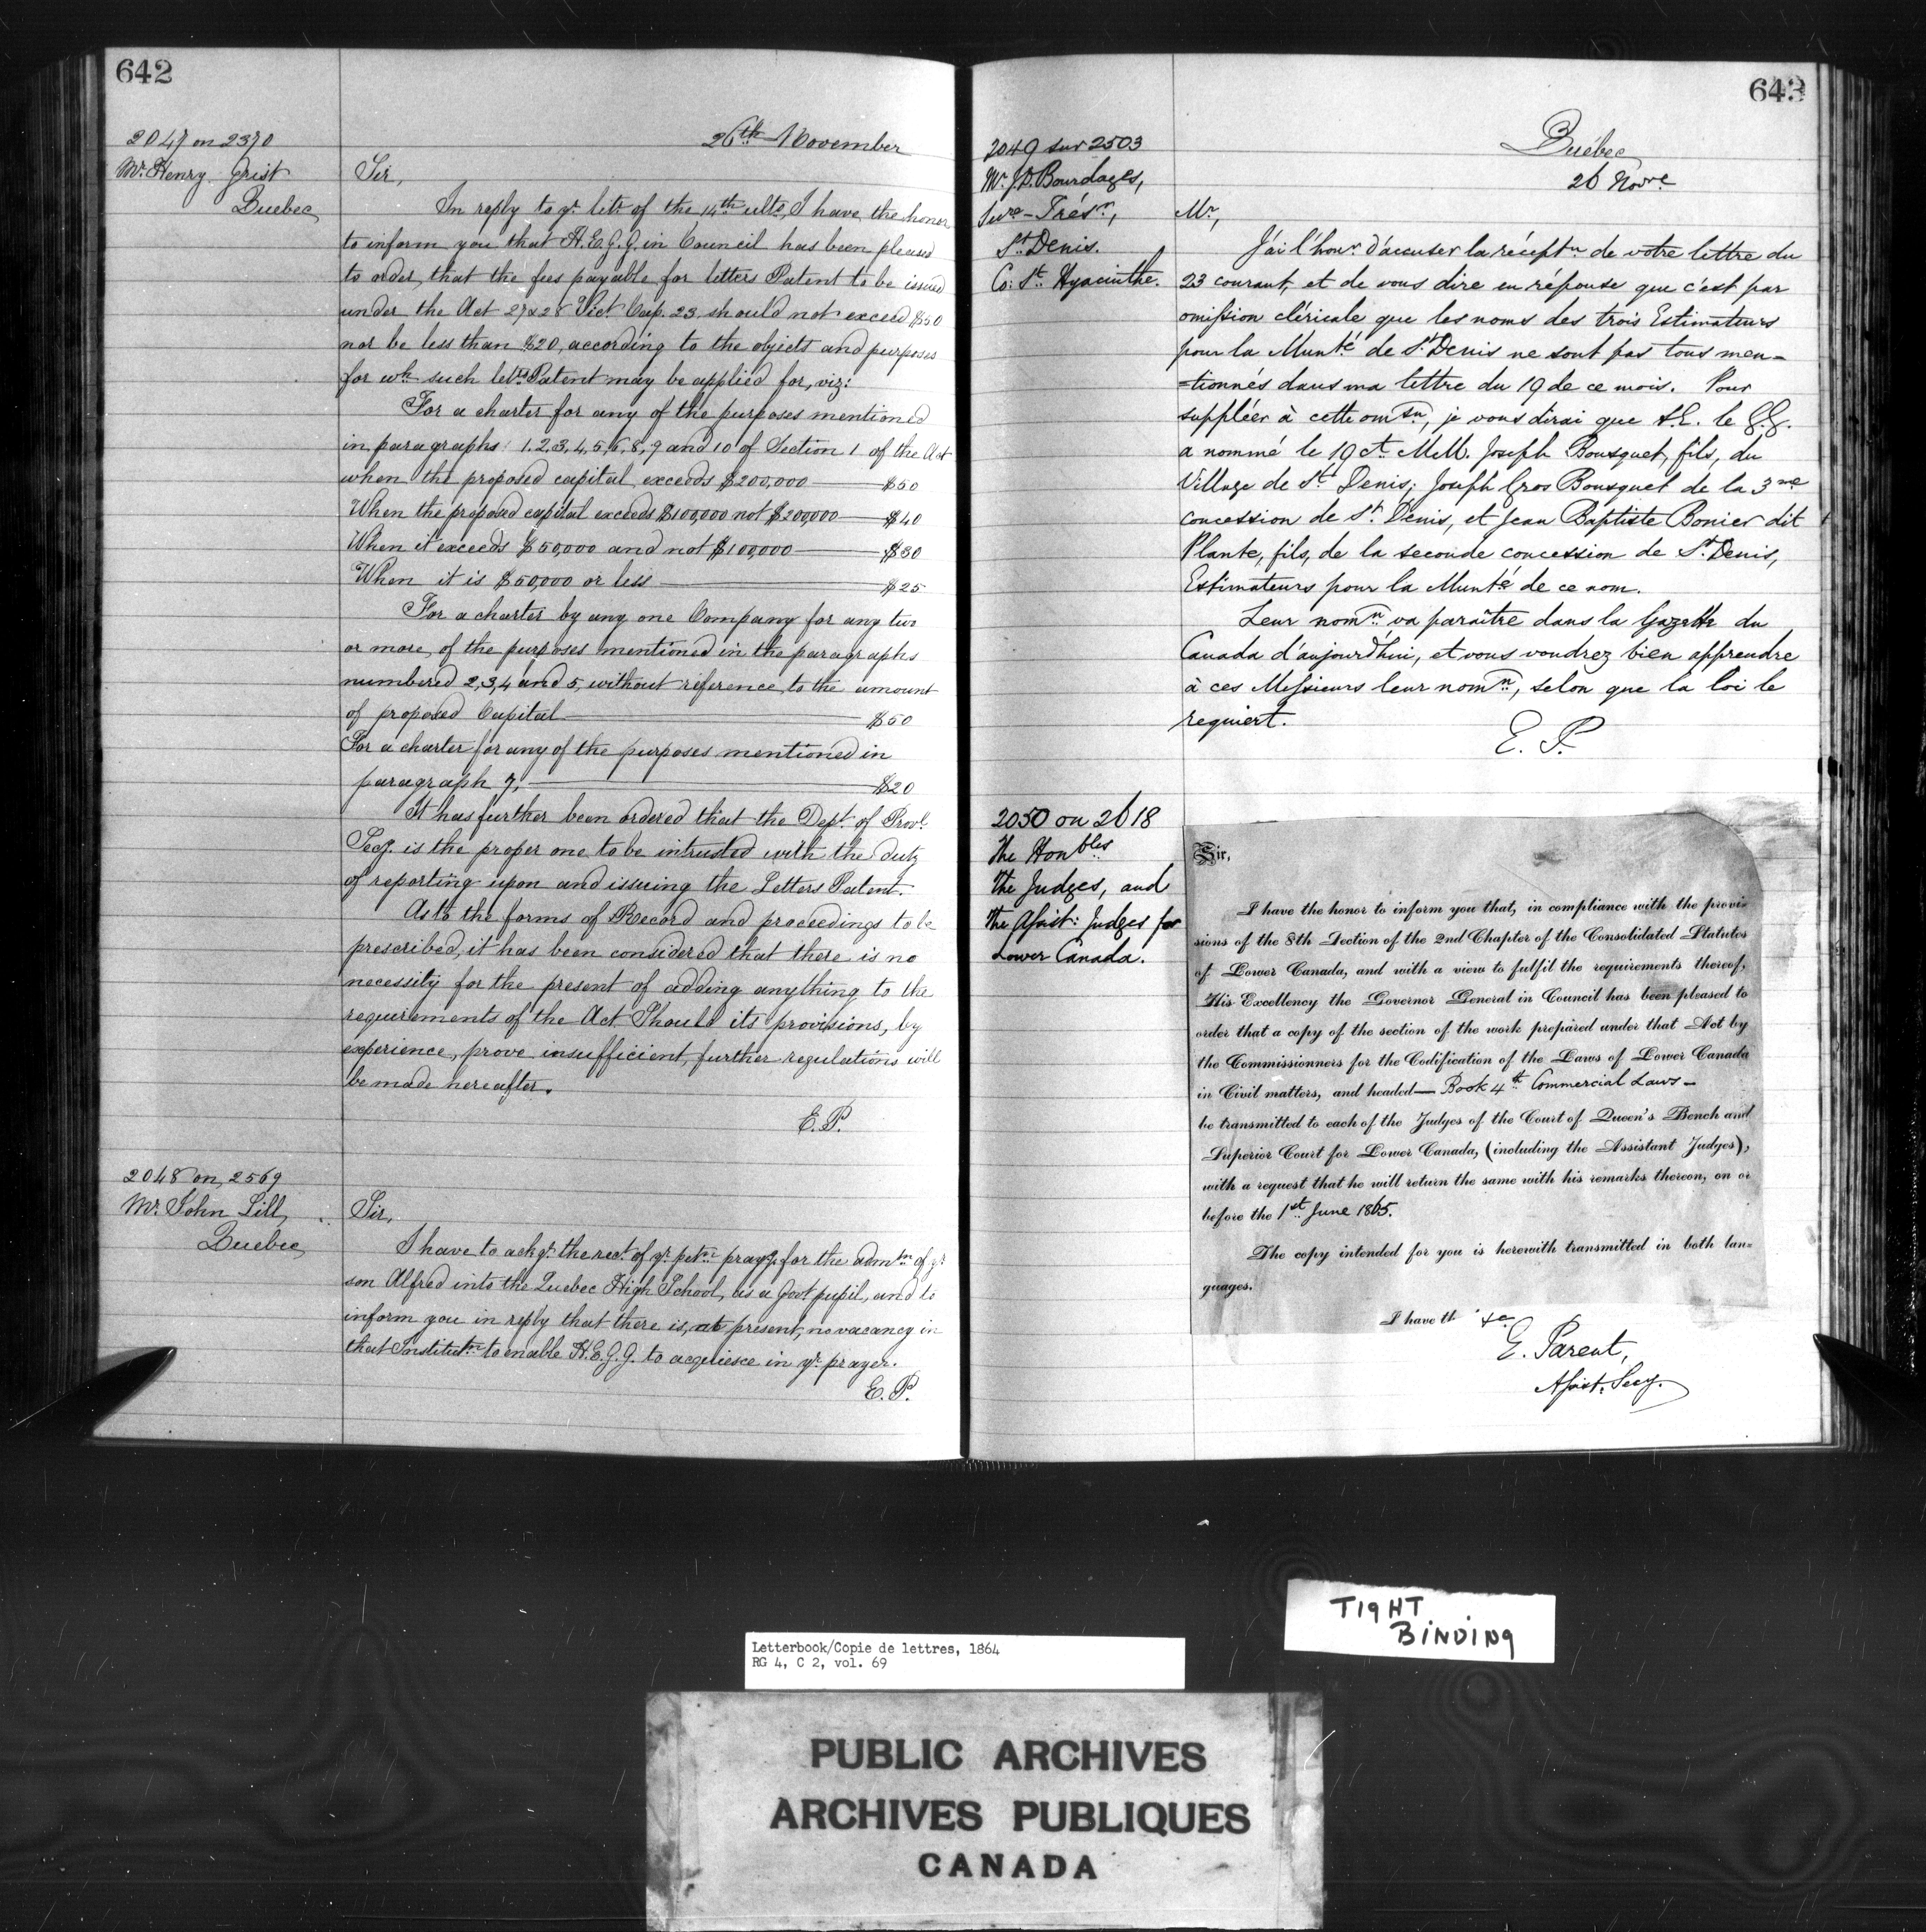 642
2047 on 2370
Mr. Henry Grist
Quebec
26th November
Sir,
In reply to yr letr of the 14th ulto, I have the honor
to inform you that H.E.G.G. in Council has been pleased
to order, that the fees payable for letters Patent to be issued
under the Act 27 & 28 Vict. Cap. 23. should not exceed $50
nor be less than $20, according to the objects and purposes
for wh such letrs Patent may be applied for, viz:
For a charter for any of the purposes mentioned
in paragraphs 1.2,3,4,5,6,8,9 and 10 of Section 1 of the Act
when the proposed capital exceeds $200,000 — $50
When the proposed capital exceeds $100,000 not $200,000 — $40
When it exceeds $50,000 and not $100,000 — $30
When it is $50,000 or less — $25
For a charter by any one Company for any two
or more of the purposes mentioned in the paragraphs
numbered 2,3,4 and 5, without reference to the amount
of proposed Capital — $50
For a charter for any of the purposes mentioned in
paragraph 7, — $20
It has further been ordered that the Dept. of Provl.
Secy. is the proper one to be intrusted with the duty
of reporting upon and issuing the Letters Patent.
As to the forms of Record and proceedings to be
prescribed, it has been considered that there is no
necessity for the present of adding anything to the
requirements of the Act Should its provisions, by
experience, prove insufficient, further regulations will
be made hereafter.
E.P.
2048 on 2569
Mr. John Lill,
Quebec
Sir,
I have to ackge. the rect. of yr. petn. prayg. for the admtn of yr
son Alfred into the Quebec High School, as a Govt pupil, and to
inform you in reply that there is, at present, no vacancy in
that Institutn. to enable H.E.G.G. to acquiesce in yr. prayer.
E.P.
643
2049 sur 2503
Mr. J.D. Bourdages,
Secre-Trésr,
St. Denis.
Co: St. Hyacinthe.
Québec
26 Novre
Mr,
J'ai l'honr. d'accuser la réceptn de votre lettre du
23 courant, et de vous dire en réponse que c'est par
omission cléricale que les noms des trois Estimateurs
pour la Munté de St. Denis ne sont pas tous men=
=tionnés dans ma lettre du 19 de ce mois. Pour
suppléer à cette omsn, je vous dirai que S.E. le G.G.
a nommé le 19 ct. MM. Joseph Bousquet, fils, du
Village de St. Denis; Joseph Gros Bousquet de la 3me
concession de St. Denis, et Jean Baptiste Bonier dit
Plante, fils, de la seconde concession de St. Denis,
Estimateurs pour la Munté de ce nom.
Leur nomn. va paraître dans la Gazette du
Canada d'aujourd'hui, et vous voudrez bien apprendre
à ces Messieurs leur nomn., selon que la loi le
requiert.
E. P.
2050 on 2618
The Honbles
The Judges, and
The Assist: Judges for
Lower Canada.
Sir,
I have the honor to inform you that, in compliance with the provi-
sions of the 8th Section of the 2nd Chapter of the Consolidated Statutes
of Lower Canada, and with a view to fulfil the requirements thereof,
His Excellency the Governor General in Council has been pleased to
order that a copy of the section of the work prepared under that Act by
the Commissionners for the Codification of the Laws of Lower Canada
in Civil matters, and headed — Book 4th Commercial Laws —
be transmitted to each of the Judges of the Court of Queen's Bench and
Superior Court for Lower Canada, (including the Assistant Judges),
with a request that he will return the same with his remarks thereon, on or
before the 1st June 1865.
The copy intended for you is herewith transmitted in both lan-
guages.
I have th &c
E. Parent,
Assist. Secy.
TIGHT
BINDING
Letterbook/Copie de lettres, 1864
RG 4, C 2, vol. 69
PUBLIC ARCHIVES
ARCHIVES PUBLIQUES
CANADA